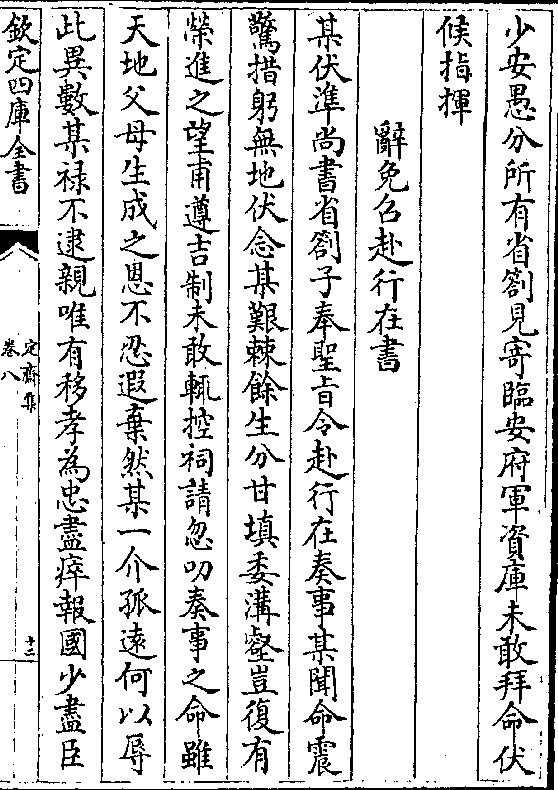 少安愚分所有省劄見寄臨安府軍資庫未敢拜命伏
候指揮
辭免召赴行在書
某伏準尚書省劄子奉聖㫖令赴行在奏事某聞命震
驚措躬無地伏念某艱棘餘生分甘填委溝壑豈復有
榮進之望甫遵吉制未敢輒控祠請忽叨奏事之命雖
天地父母生成之恩不忍遐棄然某一介孤逺何以辱
此異數某禄不逮親唯有移孝為忠盡瘁報國少盡臣
欽定四庫全書
定齋集
卷八
十二